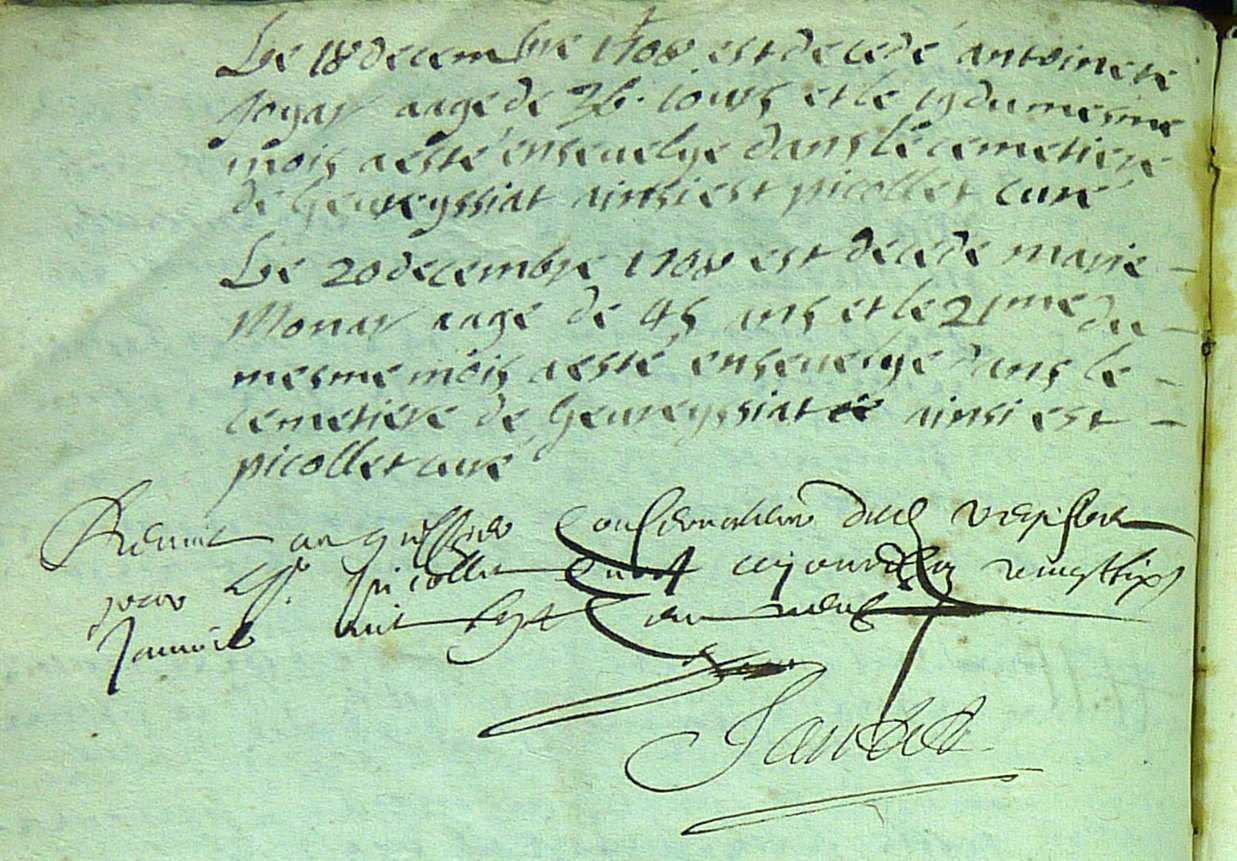 Le 18 decembre 1708 est decede antoinete
Joyas aagé de jours et le 19 du mesme
mois a esté ensevelye dans le cemetiere
de Gevreyssiat ainsi est picollet curé
Le 20 decembre 1708 est decede marie
Monas aagé de 45 ans et le 21me du
mesme mois a esté ensevelye dans le
cemetiere de Gevreyssiat ainsi est
picollet curé
Remit au greffier Conservateur
par Sr. picollet Curé aujourdhuy
Janvier mil sept Cent neuf